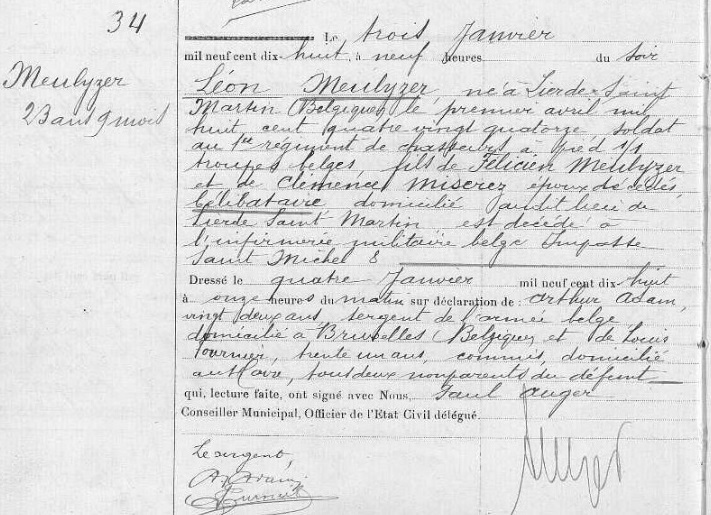 34
Meulyzer
23 ans 9 mois
Le trois Janvier
mil neuf cent dix-huit, à neuf heures du soir
Léon Meulyzer, né à Lierde-Saint
Martin (Belgique) le premier avril mil
huit cent quatre vingt quatorze soldat
au 1er régiment de chasseurs à pied
troupes belges, fils de Félicien Meulyzer
et de Clémence Miserez époux décédés,
Célibataire domicilié audit lieu de
Lierde Saint Martin est décédé à
l'infirmerie militaire belge Impasse
Saint Michel 8
Dressé le quatre Janvier mil neuf cent dix-huit
à onze heures du matin sur déclaration de : Arthur Adam,
vingt deux ans, sergent de l'armée belge
domicilié à Bruxelles (Belgique) et de Louis
Fournier, trente un ans, commis, domicilié
au Havre, tous deux non parents du défunt
qui, lecture faite, ont signé avec Nous, Paul Auger
Conseiller Municipal, Officier de l'Etat Civil délégué.
Le sergent,
A. Adam